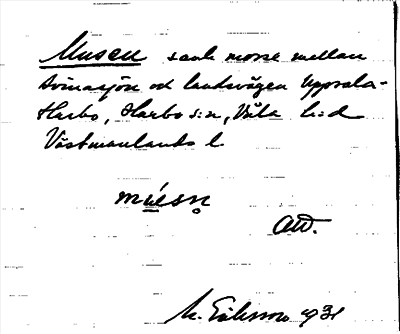 Musen sank mosse mellan
Svinasjön och landsvägen Uppsala-
Harbo, Harbo s:n, Våla h:d
Västmanlands l.
AW.
M. Eriksson 1931